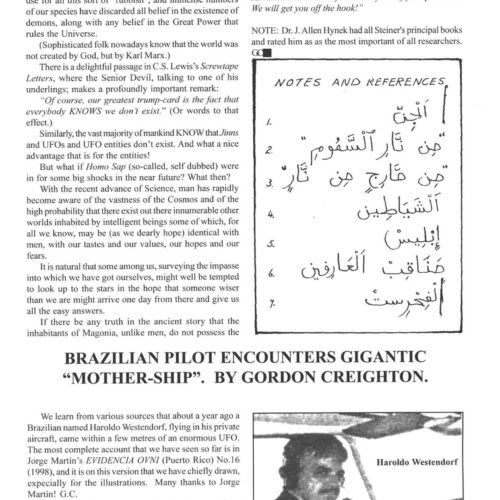 use for all this sort of "rubbish", and immense numbers
of our species have discarded all belief in the existence of
demons, along with any belief in the Great Power that
rules the Universe.
(Sophisticated folk nowadays know that the world was
not created by God, but by Karl Marx.)
There is a delightful passage in C.S. Lewis's Screwtape
Letters, where the Senior Devil, talking to one of his
underlings; makes a profoundly important remark:
"Of course, our greatest trump-card is the fact that
everybody KNOWS we don't exist." (Or words to that
effect.)
Similarly, the vast majority of mankind KNOW that Jinns
and UFOs and UFO entities don't exist. And what a nice
advantage that is for the entities!
But what if Homo Sap (so-called, self dubbed) were
in for some big shocks in the near future? What then?
With the recent advance of Science, man has rapidly
become aware of the vastness of the Cosmos and of the
high probability that there exist out there innumerable other
worlds inhabited by intelligent beings some of which, for
all we know, may be (as we dearly hope) identical with
men, with our tastes and our values, our hopes and our
fears.
It is natural that some among us, surveying the impasse
into which we have got ourselves, might well be tempted
to look up to the stars in the hope that someone wiser
than we are might arrive one day from there and give us
all the easy answers.
If there be any truth in the ancient story that the
inhabitants of Magonia, unlike men, do not possess the
We will get you off the hook!"
NOTE: Dr. J. Allen Hynek had all Steiner's principal books
and rated him as as the most important of all researchers.
GC
NOTES AND REFERENCES
1. اَلْجِنّ
2. "مِن نَّارِ ٱلسَّمُومِ"
3. "مِن مَّارِجٍ مِن نَّارٍ"
4. اَلشَّيَاطِين
5. إِبْلِيس
6. مَنَاقِب اَلْعَارِفِين
7. اَلْفِهْرِسْت
BRAZILIAN PILOT ENCOUNTERS GIGANTIC
"MOTHER-SHIP". BY GORDON CREIGHTON.
We learn from various sources that about a year ago a
Brazilian named Haroldo Westendorf, flying in his private
aircraft, came within a few metres of an enormous UFO.
The most complete account that we have seen so far is in
Jorge Martín's EVIDENCIA OVNI (Puerto Rico) No.16
(1998), and it is on this version that we have chiefly drawn,
especially for the illustrations. Many thanks to Jorge
Martin! G.C.
Haroldo Westendorf